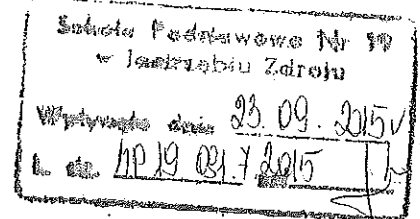 Szkoła Podstawowa Nr 19
w Jastrzębiu Zdroju
Wpłynęło dnia 23.09.2015
L. dz. SP 19 021.7.2015